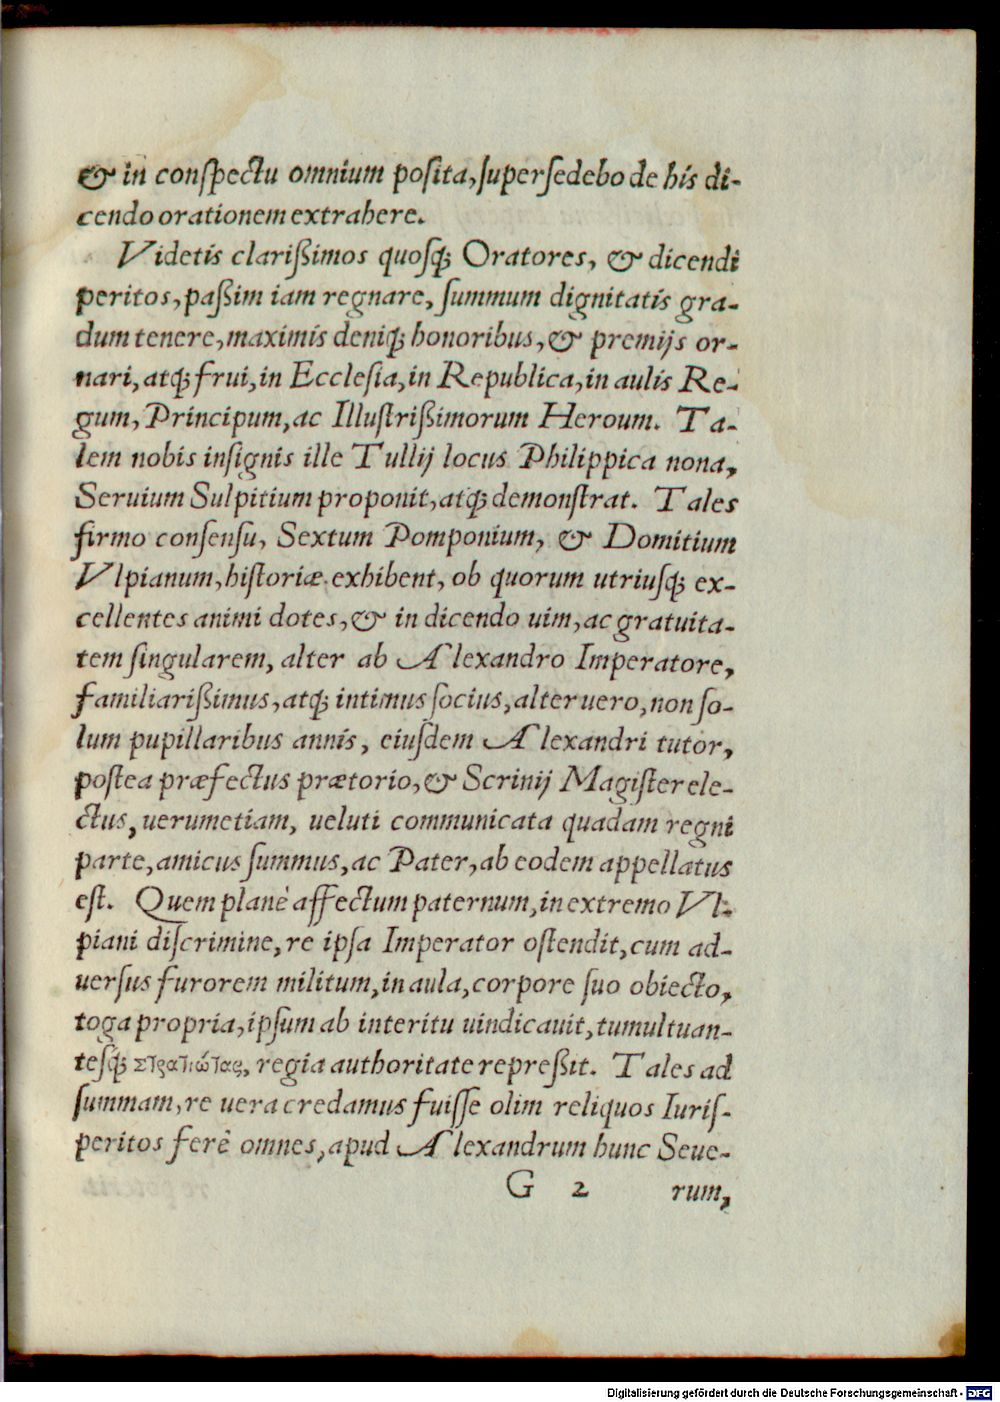 & in conſpectu omnium poſita, ſuperſedebo de his di-
cendo orationem extrahere.
Videtis clarißimos quoſq; Oratores, & dicendi
peritos, paßim iam regnare, ſummum dignitatis gra-
dum tenere, maximis deniq; honoribus, & premijs or-
nari, atq; frui, in Eccleſia, in Republica, in aulis Re-
gum, Principum, ac Illuſtrißimorum Heroum. Ta-
lem nobis inſignis ille Tullij locus Philippica nona,
Seruium Sulpitium proponit, atq; demonſtrat. Tales
firmo conſenſu, Sextum Pomponium, & Domitium
Vlpianum, hiſtoriæ exhibent, ob quorum utriuſq; ex-
cellentes animi dotes, & in dicendo uim, ac grauita-
tem ſingularem, alter ab Alexandro Imperatore,
familiarißimus, atq; intimus ſocius, alter uero, non ſo-
lum pupillaribus annis, eiuſdem Alexandri tutor,
poſtea præfectus prætorio, & Scrinij Magiſter ele-
ctus, uerumetiam, ueluti communicata quadam regni
parte, amicus ſummus, ac Pater, ab eodem appellatus
eſt. Quem planè affectum paternum, in extremo Vl-
piani diſcrimine, re ipſa Imperator oſtendit, cum ad-
uerſus furorem militum, in aula, corpore ſuo obiecto,
toga propria, ipſum ab interitu uindicauit, tumultuan-
teſq́; στρατιώτας, regia authoritate repreßit. Tales ad
ſummam, re uera credamus fuiſſe olim reliquos Iuriſ-
peritos ferè omnes, apud Alexandrum hunc Seue-
G 2 rum,
Digitalisierung gefördert durch die Deutsche Forschungsgemeinschaft - DFG